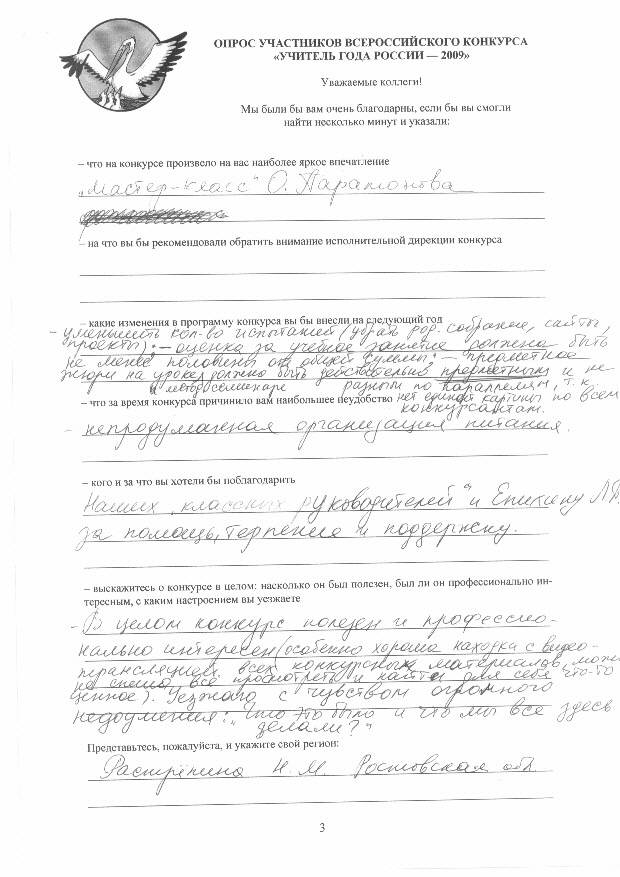 ОПРОС УЧАСТНИКОВ ВСЕРОССИЙСКОГО КОНКУРСА
«УЧИТЕЛЬ ГОДА РОССИИ — 2009»
Уважаемые коллеги!
Мы были бы вам очень благодарны, если бы вы смогли
найти несколько минут и указали:
– что на конкурсе произвело на вас наиболее яркое впечатление
„Мастер-класс" О. Парамонова
– на что вы бы рекомендовали обратить внимание исполнительной дирекции конкурса
– какие изменения в программу конкурса вы бы внесли на следующий год
- уменьшить кол-во испытаний (убрать род. собрание, сайты,
проекты); – оценка за учебное занятие должна быть
не менее половины от общей суммы; – предметное
жюри на уроке должно быть действительно предметным и не
разным по параллелям, т.к.
и методсеминаре
– что за время конкурса причинило вам наибольшее неудобство
нет единой картины по всем
конкурсантам.
- непродуманная организация питания.
– кого и за что вы хотели бы поблагодарить
Наших „классных руководителей" и Епихину
за помощь, терпение и поддержку.
– выскажитесь о конкурсе в целом: насколько он был полезен, был ли он профессионально ин-
тересным, с каким настроением вы уезжаете
- В целом конкурс полезен и профессио-
нально интересен (особенно хороша находка с видео-
трансляцией всех конкурсных материалов, можно
не спеша всё просмотреть и найти для себя что-то
ценное). Уезжаю с чувством огромного
недоумения: „Что это было и что мы все здесь
делали?"
Представьтесь, пожалуйста, и укажите свой регион:
Растрёпина Н.М. Ростовская обл.
3